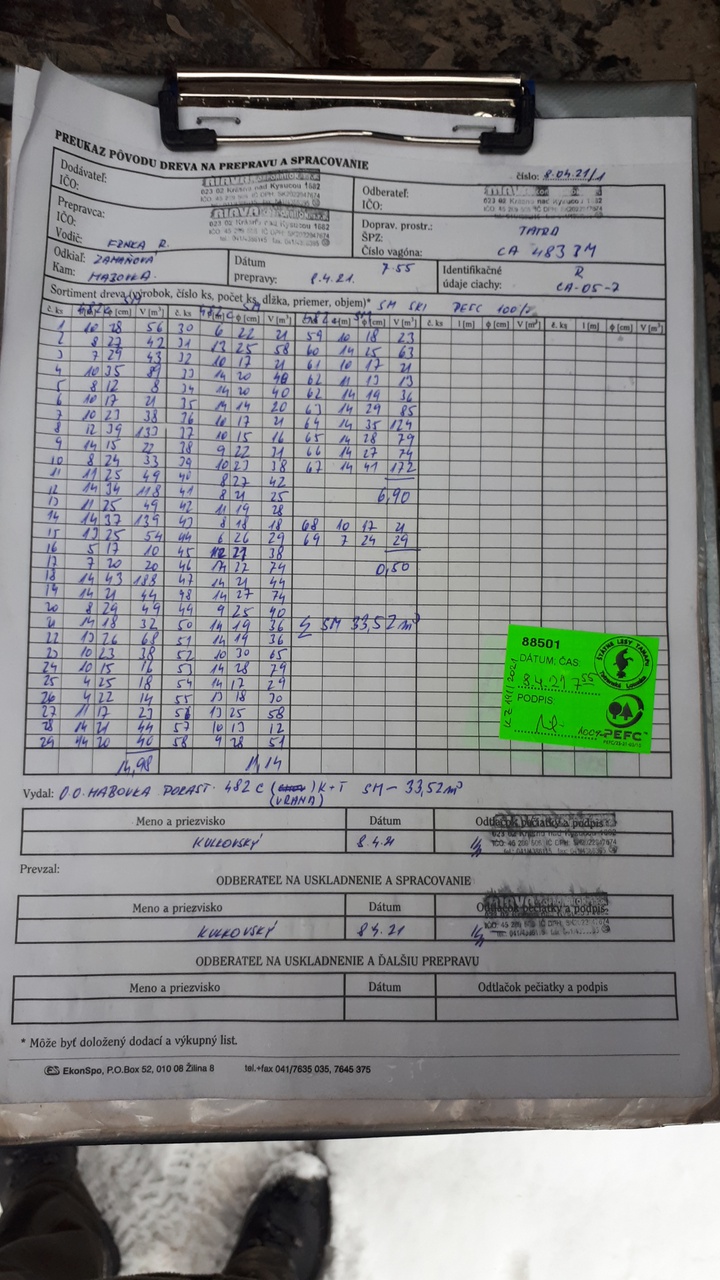 PREUKAZ PÔVODU DREVA NA PREPRAVU A SPRACOVANIE
číslo: 8.04.21/1
Dodávateľ:
IČO:
023 02 Krásno nad Kysucou 1682
Odberateľ:
IČO:
Prepravca:
IČO:
Vodič:
Doprav. prostr.: TATRA
ŠPZ:
Číslo vagóna: CA 483
Odkiaľ:
Kam: HABOVKA
Dátum
prepravy: 8.4.21. 7.55
Identifikačné
údaje ciachy: CA-05-7
Sortiment dreva (výrobok, číslo ks, počet ks, dĺžka, priemer, objem)* SM
č. ks l [m] ϕ [cm] V [m³] č. ks l [m] ϕ [cm] V [m³] č. ks l [m] ϕ [cm] V [m³] č. ks l [m] ϕ [cm] V [m³] č. ks l [m] ϕ [cm] V [m³]
1 10 28 56 30 6 22 21 59 10 18 23
2 8 27 42 31 13 25 58 60 14 25 63
3 7 29 43 32 10 17 21 61 10 17 21
4 10 35 33 14 20 40 62 11 13 13
5 8 12 8 34 14 20 40 62 14 19 36
6 10 17 21 35 14 14 20 63 14 29 85
7 10 23 38 36 10 17 21 64 14 35 124
8 12 39 133 37 10 15 16 65 14 28 79
9 14 15 22 38 9 22 31 66 14 27 74
10 8 24 33 39 10 23 38 67 14 41 172
11 11 25 49 40 8 27 42
12 14 34 118 41 8 21 25 6,90
13 11 25 49 42 11 19 28
14 14 37 139 43 8 18 18 68 10 17 21
15 13 25 54 44 6 26 29 69 7 24 29
16 5 17 10 45 21 38
17 7 20 20 46 22 74 0,50
18 14 43 188 47 14 21 44
19 14 21 44 48 14 27 74
20 8 29 49 49 9 25 40
21 14 18 32 50 14 19 36 Σ SM 33,52 m³
22 13 26 68 51 14 19 36
23 10 23 38 52 10 30 65
24 10 15 16 53 14 28 79
25 4 25 18 54 14 17 29
26 4 22 14 55 13 18 30
27 11 17 23 56 13 25 58
28 14 21 44 57 10 13 12
29 14 20 40 58 9 28 51
14,98 11,14
88501
DÁTUM, ČAS:
8.4.21 7 55
PODPIS:
ŠTÁTNE LESY TANAPU
Tatranská Lomnica
PEFC
Vydal: O.O. HABOVKA PORAST. 482 C ( ) K+T SM – 33,52 m³
(VRANA)
Meno a priezvisko Dátum Odtlačok pečiatky a podpis
KULKOVSKÝ 8.4.21
Prevzal:
ODBERATEĽ NA USKLADNENIE A SPRACOVANIE
Meno a priezvisko Dátum Odtlačok pečiatky a podpis
KULKOVSKÝ 8.4.21
ODBERATEĽ NA USKLADNENIE A ĎALŠIU PREPRAVU
Meno a priezvisko Dátum Odtlačok pečiatky a podpis
* Môže byť doložený dodací a výkupný list.
EkonSpo, P.O.Box 52, 010 08 Žilina 8 tel.+fax 041/7635 035, 7645 375